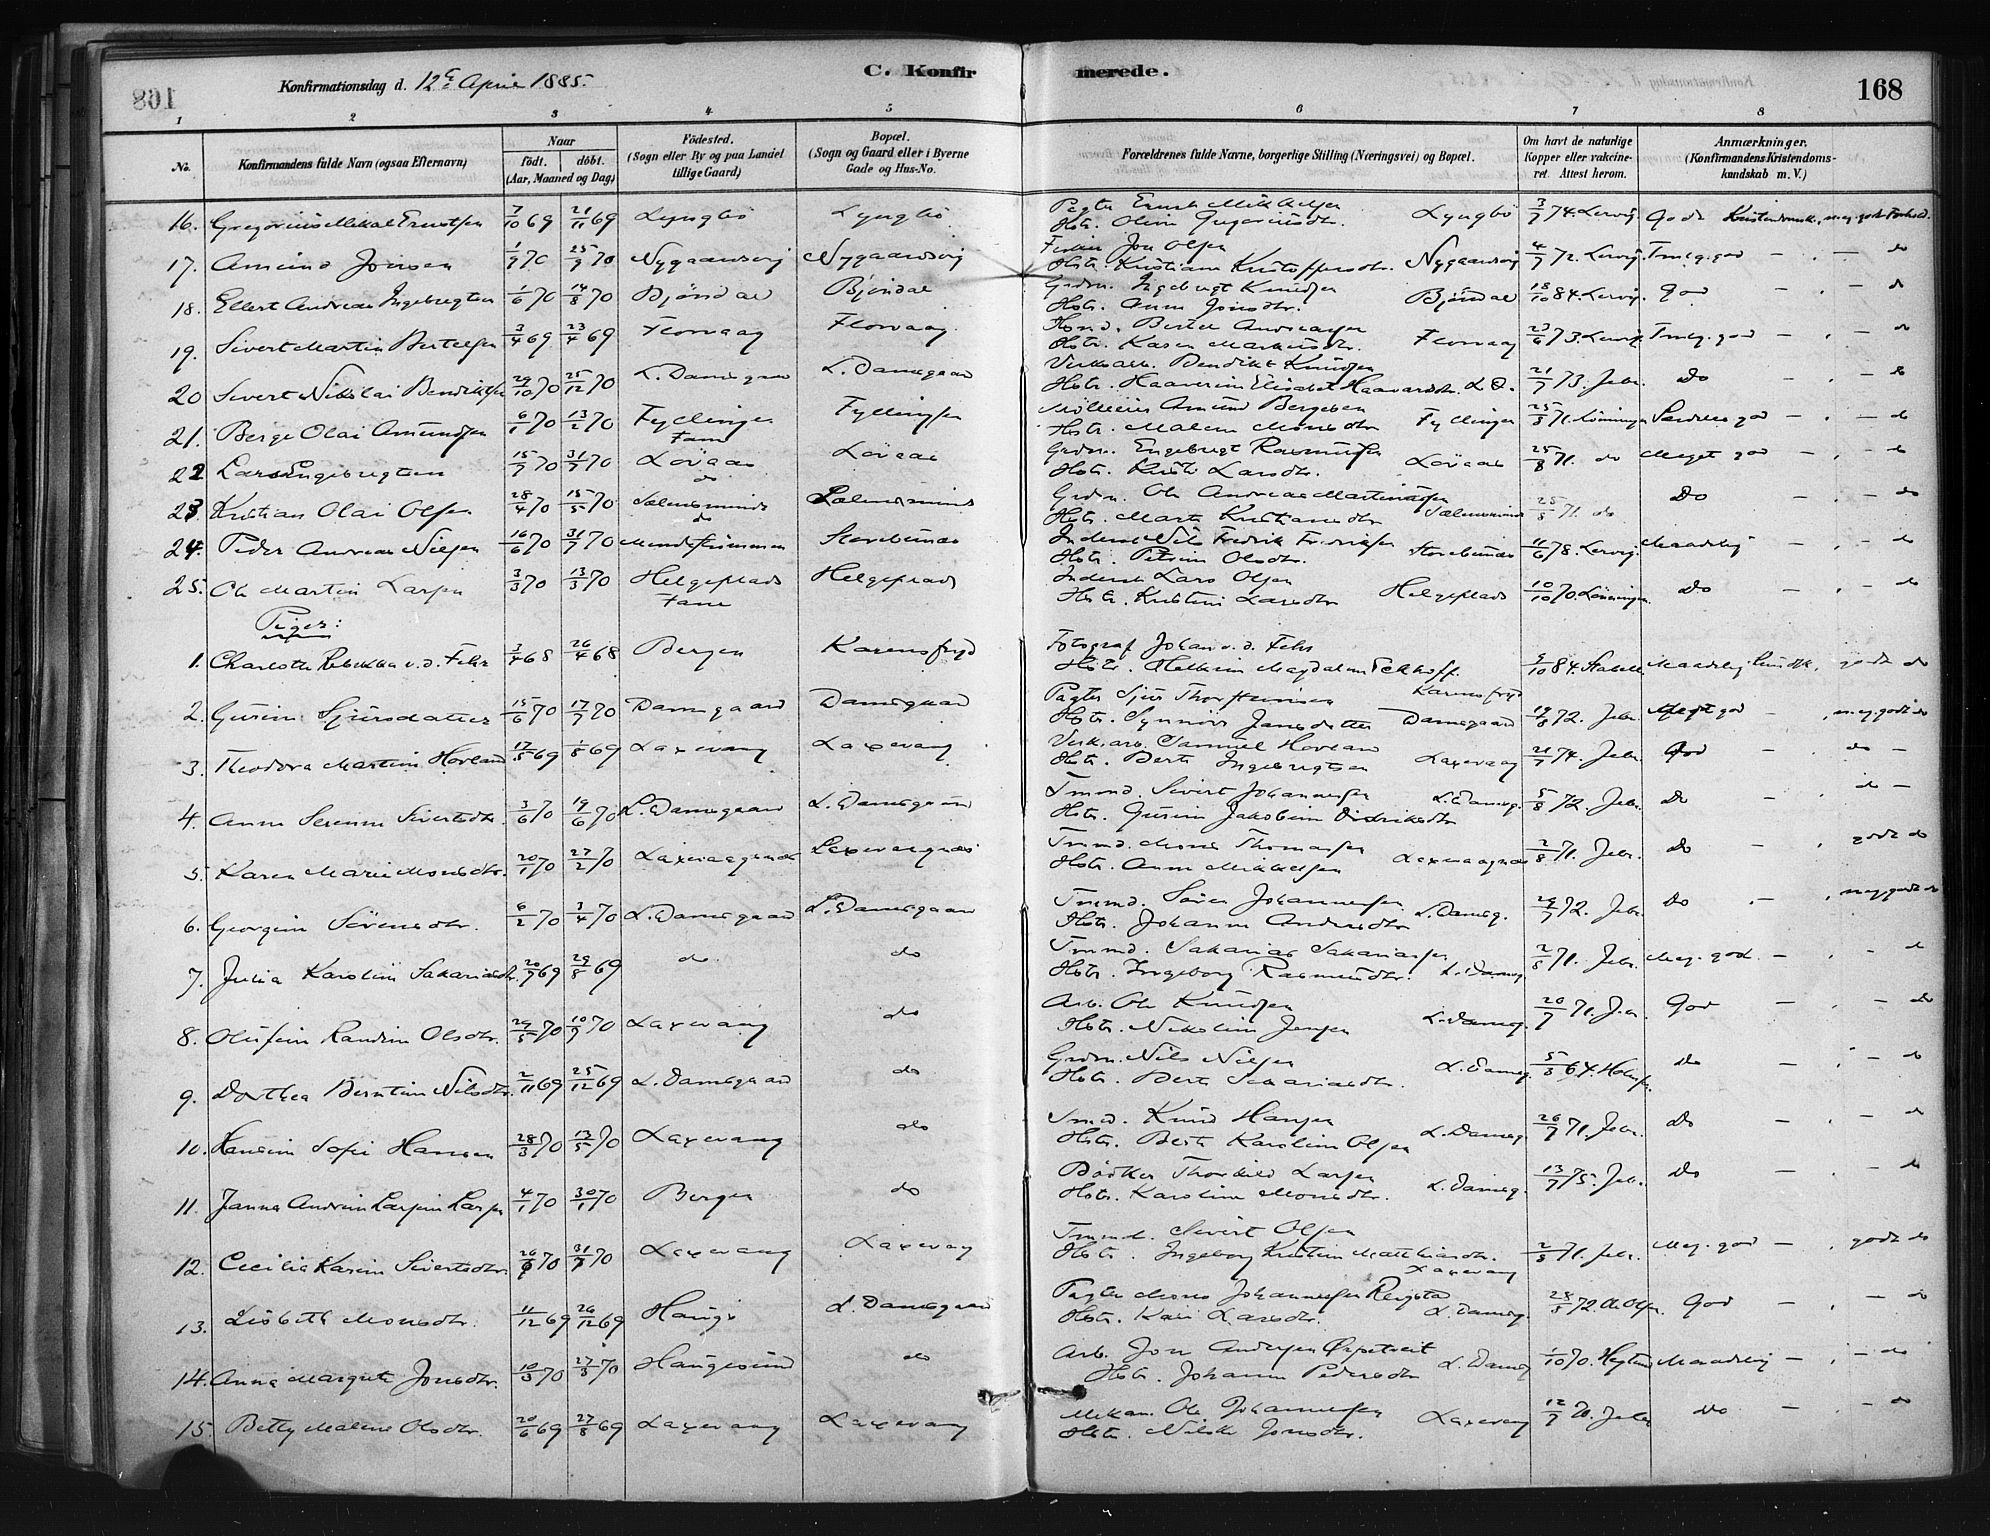 Konfirmationsdag d. 12te April 1885. C. Konfirmerede. 168
1 2 3 4 5 6 7 8
No. Konfirmandens fulde Navn (ogsaa Efternavn) Naar født. døbt. (Aar, Maaned og Dag) Fødested. (Sogn eller By og paa Landet tillige Gaard) Bopæl. (Sogn og Gaard eller i Byerne Gade og Hus-No. Forældrenes fulde Navne, borgerlige Stilling (Næringsvei) og Bopæl. Om havt de naturlige Kopper eller vakcineret. Attest herom. Anmærkninger. (Konfirmandens Kristendomskundskab m. V.)
16. Gregorius Mikal Ernstsen 7/10 69 21/11 69 Lyngbö Lyngbö Pagter Ernst Mikkelsen Hstr. Oline Gregoriusdtr. Lyngbö 3/7 74. Lervig God Kristendomsk., meg. godt Forhold.
17. Amund Jonsen 1/7 70 25/9 70 Nygaardsvig Nygaardsvig Fisker Jon Olsen Hstr. Kristiane Kristoffersdtr. Nygaardsvig 4/7 72. Lervig Tmlg. god — . — do
18. Ellert Andreas Ingebregtsen 1/6 70 14/8 70 Bjöndal Bjöndal Grdm. Ingebregt Knudsen Hstr. Anna Jonsdtr. Bjöndal 18/10 84. Lervig God — . — do
19. Sivert Martin Bertelsen 3/4 69 23/4 69 Florvaag Florvaag Hsmd. Bertel Andreassen Hstr. Karen Markusdtr. Florvaag 23/6 73. Lervig Tmlg. god — . — do
20 Sivert Nikolai Bendiktsen 29/10 70 25/12 70 L. Damsgaard L. Damsgaard Verksarb. Bendikt Knudsen Hstr. Haaverine Elisabet Haavardsdtr. L. D. 21/7 73. Jebe. Do — . — do
21. Berge Olai Amundsen 6/1 70 13/2 70 Fyllingen Fane Fyllingen Mölleeier Amund Bergesen Hstr. Malene Monsdtr Fyllingen 25/8 71. Lönningen Særdeles god — . — do
22 Lars Engebregtsen 15/7 70 31/7 70 Lövaas do Lövaas Grdm. Engebregt Rasmussen Hstr. Kristi Larsdtr. Lövaas 25/8 71. do Meget god — , — do
23. Kristian Olai Olsen 28/4 70 15/5 70 Sælensminde do Sælensminde Grdm. Ole Andreas Martinussen Hstr. Marte Kristiansdtr Sælensminde 25/8 71. do Do — . — do
24. Peder Andreas Nilsen 16/6 70 31/7 70 Storebunds Inderst Nils Fredrik Fredriksen Hstr. Petrine Olsdtr. Storebunds 11/6 78. Lervig Maadelig — . — do
25. Ole Martin Larsen 3/3 70 13/3 70 Helgeplads Fane Helgeplads Inderst Lars Olsen Hstr. Kristine Larsdtr Helgeplads 10/10 70. Lönningen. Do — . — do
Piger:
1. Charlotte Rebekka v. d. Fehr 3/4 68 26/4 68 Bergen Karensfryd Fotograf Johan v. d. Fehr Hstr. Helene Magdalene Eckhoff Karensfryd 9/10 84. Stabell. Maadelig Kundsk. , godt do
2. Gurine Sjursdatter 15/6 70 17/7 70 Damsgaard Damsgaard Pagter Sjur Thorsteinsen Hstr. Synnöve Jansdatter Damsgaard 19/8 72. Jebe Meget god — , meg. godt do
3. Theodora Martine Hovland 17/5 69 1/8 69 Laxevaag Laxevaag Verk.arb. Samuel Hovland Hstr. Berte Ingebregtsen Laxevaag 21/7 74. Jebe God — . do —
4. Anne Serene Sivertsdtr. 3/6 70 19/6 70 L. Damsgaard L. Damsgaard Tmmd. Sivert Johannessen Hstr. Gurine Jakobine Didriksdtr L. Damsg. 5/8 72. Jebe. Do — . do —
5. Karen Marie Monsdtr. 20/1 70 27/2 70 Laxevaagnæs Laxevaagnæs Tmmd. Mons Thomassen Hstr. Anne Mikkelsen Laxevaagnæs 2/8 71. Jebe. Do — . godt do
6. Georgine Sörensdtr. 6/2 70 3/4 70 L. Damsgaard L. Damsgaard Tmmd. Sören Johannessen Hstr. Johanne Andersdtr L. Damsg. 29/7 72. Jebe Do . — , meg. godt do
7. Julia Karoline Sakariasdtr. 20/7 69 29/8 69 do do Tmmd. Sakarias Sakariassen Hstr. Ingeborg Rasmusdtr. L. Damsg 2/8 71. Jebe. Meg. god. — , — do
8. Olufine Randine Olsdtr. 29/5 70 10/7 70 Laxevaag do Arb. Ole Knudsen Hstr. Nikoline Jensen L. Damsg. 20/7 71. Jebe God — . — do
9. Dorthea Berntine Nilsdtr. 2/11 69 25/12 69 L. Damsgaard do Grdm. Nils Nilsen Hstr. Berte Sakariasdtr. L. Damsg. Do — . — do
10. Hansine Sofie Hansen 28/3 70 13/5 70 Laxevaag do Smed. Knud Hansen Hstr. Berte Karoline Olsen L. Damsg. 26/7 71. Jebe. Do — . — do
11. Janna Andrine Larsine Larsen 4/1 70 30/1 70 Bergen do Bödker Thorkild Larsen Hstr. Karoline Monsdtr. L. Damsg. 13/7 75. Jebe. Do — . — do
12. Cecilie Karine Sivertsdtr. 31/7 70 Laxevaag Laxevaag Tmmd. Sivert Olsen Hstr. Ingeborg Kristine Matthiasdtr. Laxevaag 2/8 71. Jebe. Meg. god — , godt do
13. Lisbeth Monsdtr. 11/12 69 26/12 69 Hauge L. Damsgaard Pagter Mons Johannessen Hstr. Kari Larsdtr. L. Damsg. 28/5 72. God — , — do
14. Anna Margrete Jonsdtr. 10/3 70 27/3 70 Haugesund do Arb. Jon Andersen Hstr. Johanne Pedersdtr L. Damsg 1/10 70. Maadelig — , — do
15. Betty Malene Olsdtr. 20/6 69 27/8 69 Laxevaag Laxevaag Mekan. Ole Johannessen Hstr. Nilske Jonsdtr. Laxevaag 12/7 Jebe Do — . — do